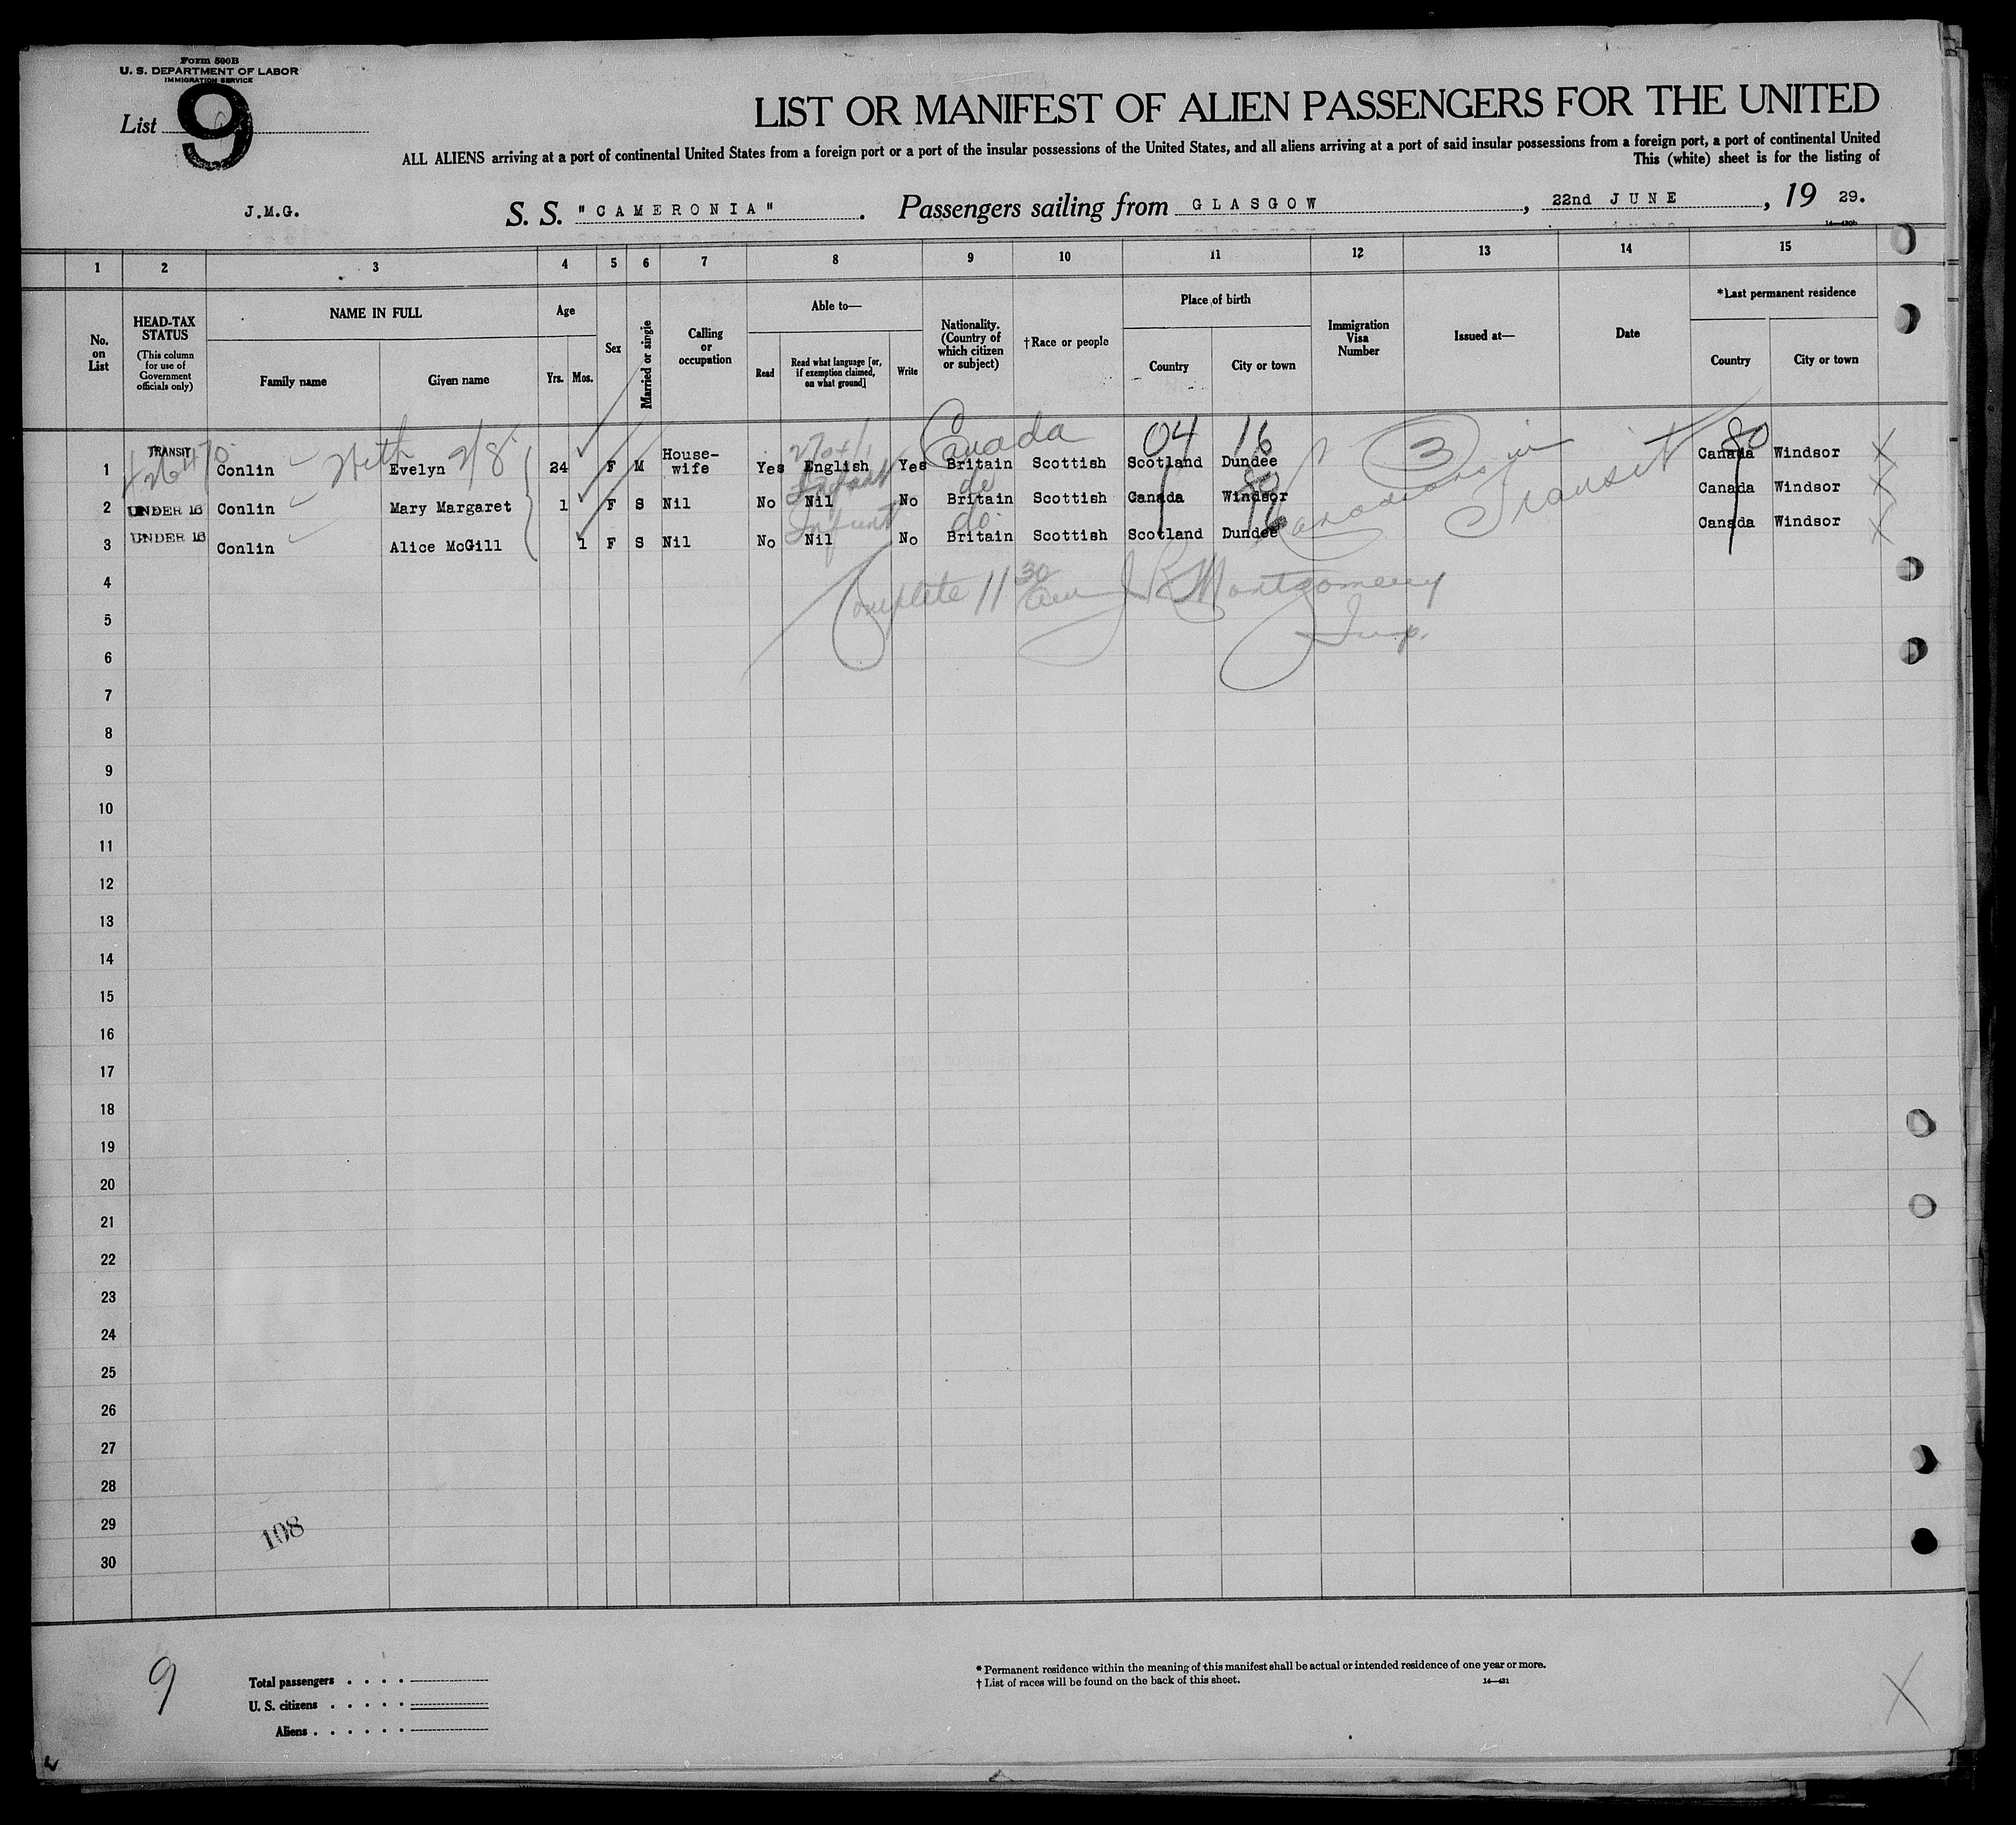 Form 500B
U. S. DEPARTMENT OF LABOR
IMMIGRATION SERVICE
List 9
LIST OR MANIFEST OF ALIEN PASSENGERS FOR THE UNITED
ALL ALIENS arriving at a port of continental United States from a foreign port or a port of the insular possessions of the United States, and all aliens arriving at a port of said insular possessions from a foreign port, a port of continental United
This (white) sheet is for the listing of
J.M.G. S. S. "CAMERONIA". Passengers sailing from GLASGOW, 22nd JUNE, 19 29.
1 2 3 4 5 6 7 8 9 10 11 12 13 14 15
No. on List
HEAD-TAX STATUS
(This column for use of Government officials only)
NAME IN FULL
Family name Given name
Age
Yrs. Mos.
Sex
Married or single
Calling or occupation
Able to—
Read Read what language [or, if exemption claimed, on what ground] Write
Nationality. (Country of which citizen or subject)
†Race or people
Place of birth
Country City or town
Immigration Visa Number
Issued at—
Date
*Last permanent residence
Country City or town
Canada 04 16 3 80
Canadians in Transit
1 TRANSIT Conlin Evelyn 24 F M House-wife Yes English Yes Britain Scottish Scotland Dundee Canada Windsor X
Infant do 80
2 UNDER 16 Conlin Mary Margaret 1 F S Nil No Nil No Britain Scottish Canada Windsor Canada Windsor X
Infant do. 16
3 UNDER 16 Conlin Alice McGill 1 F S Nil No Nil No Britain Scottish Scotland Dundee Canada Windsor X
Complete 11 30 am J R Montgomery
Insp.
4
5
6
7
8
9
10
11
12
13
14
15
16
17
18
19
20
21
22
23
24
25
26
27
28
29
30
108
9
Total passengers . . . .
U. S. citizens . . . . .
Aliens . . . . . .
* Permanent residence within the meaning of this manifest shall be actual or intended residence of one year or more.
† List of races will be found on the back of this sheet.
14—431
X